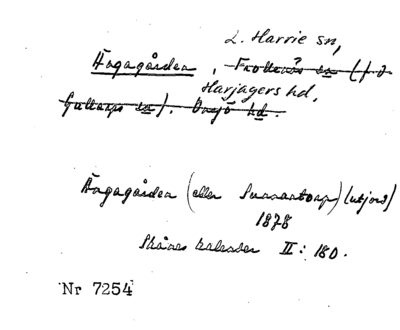 L. Harrie sn,
Ängagården, Frotterås sn (f.d.
Harjagers hd,
Gullarps sn). Onsjö hd.
Ängagården (eller Sunnantorp) (utjord)
1878
Skånes kalender II: 180.
Nr 7254